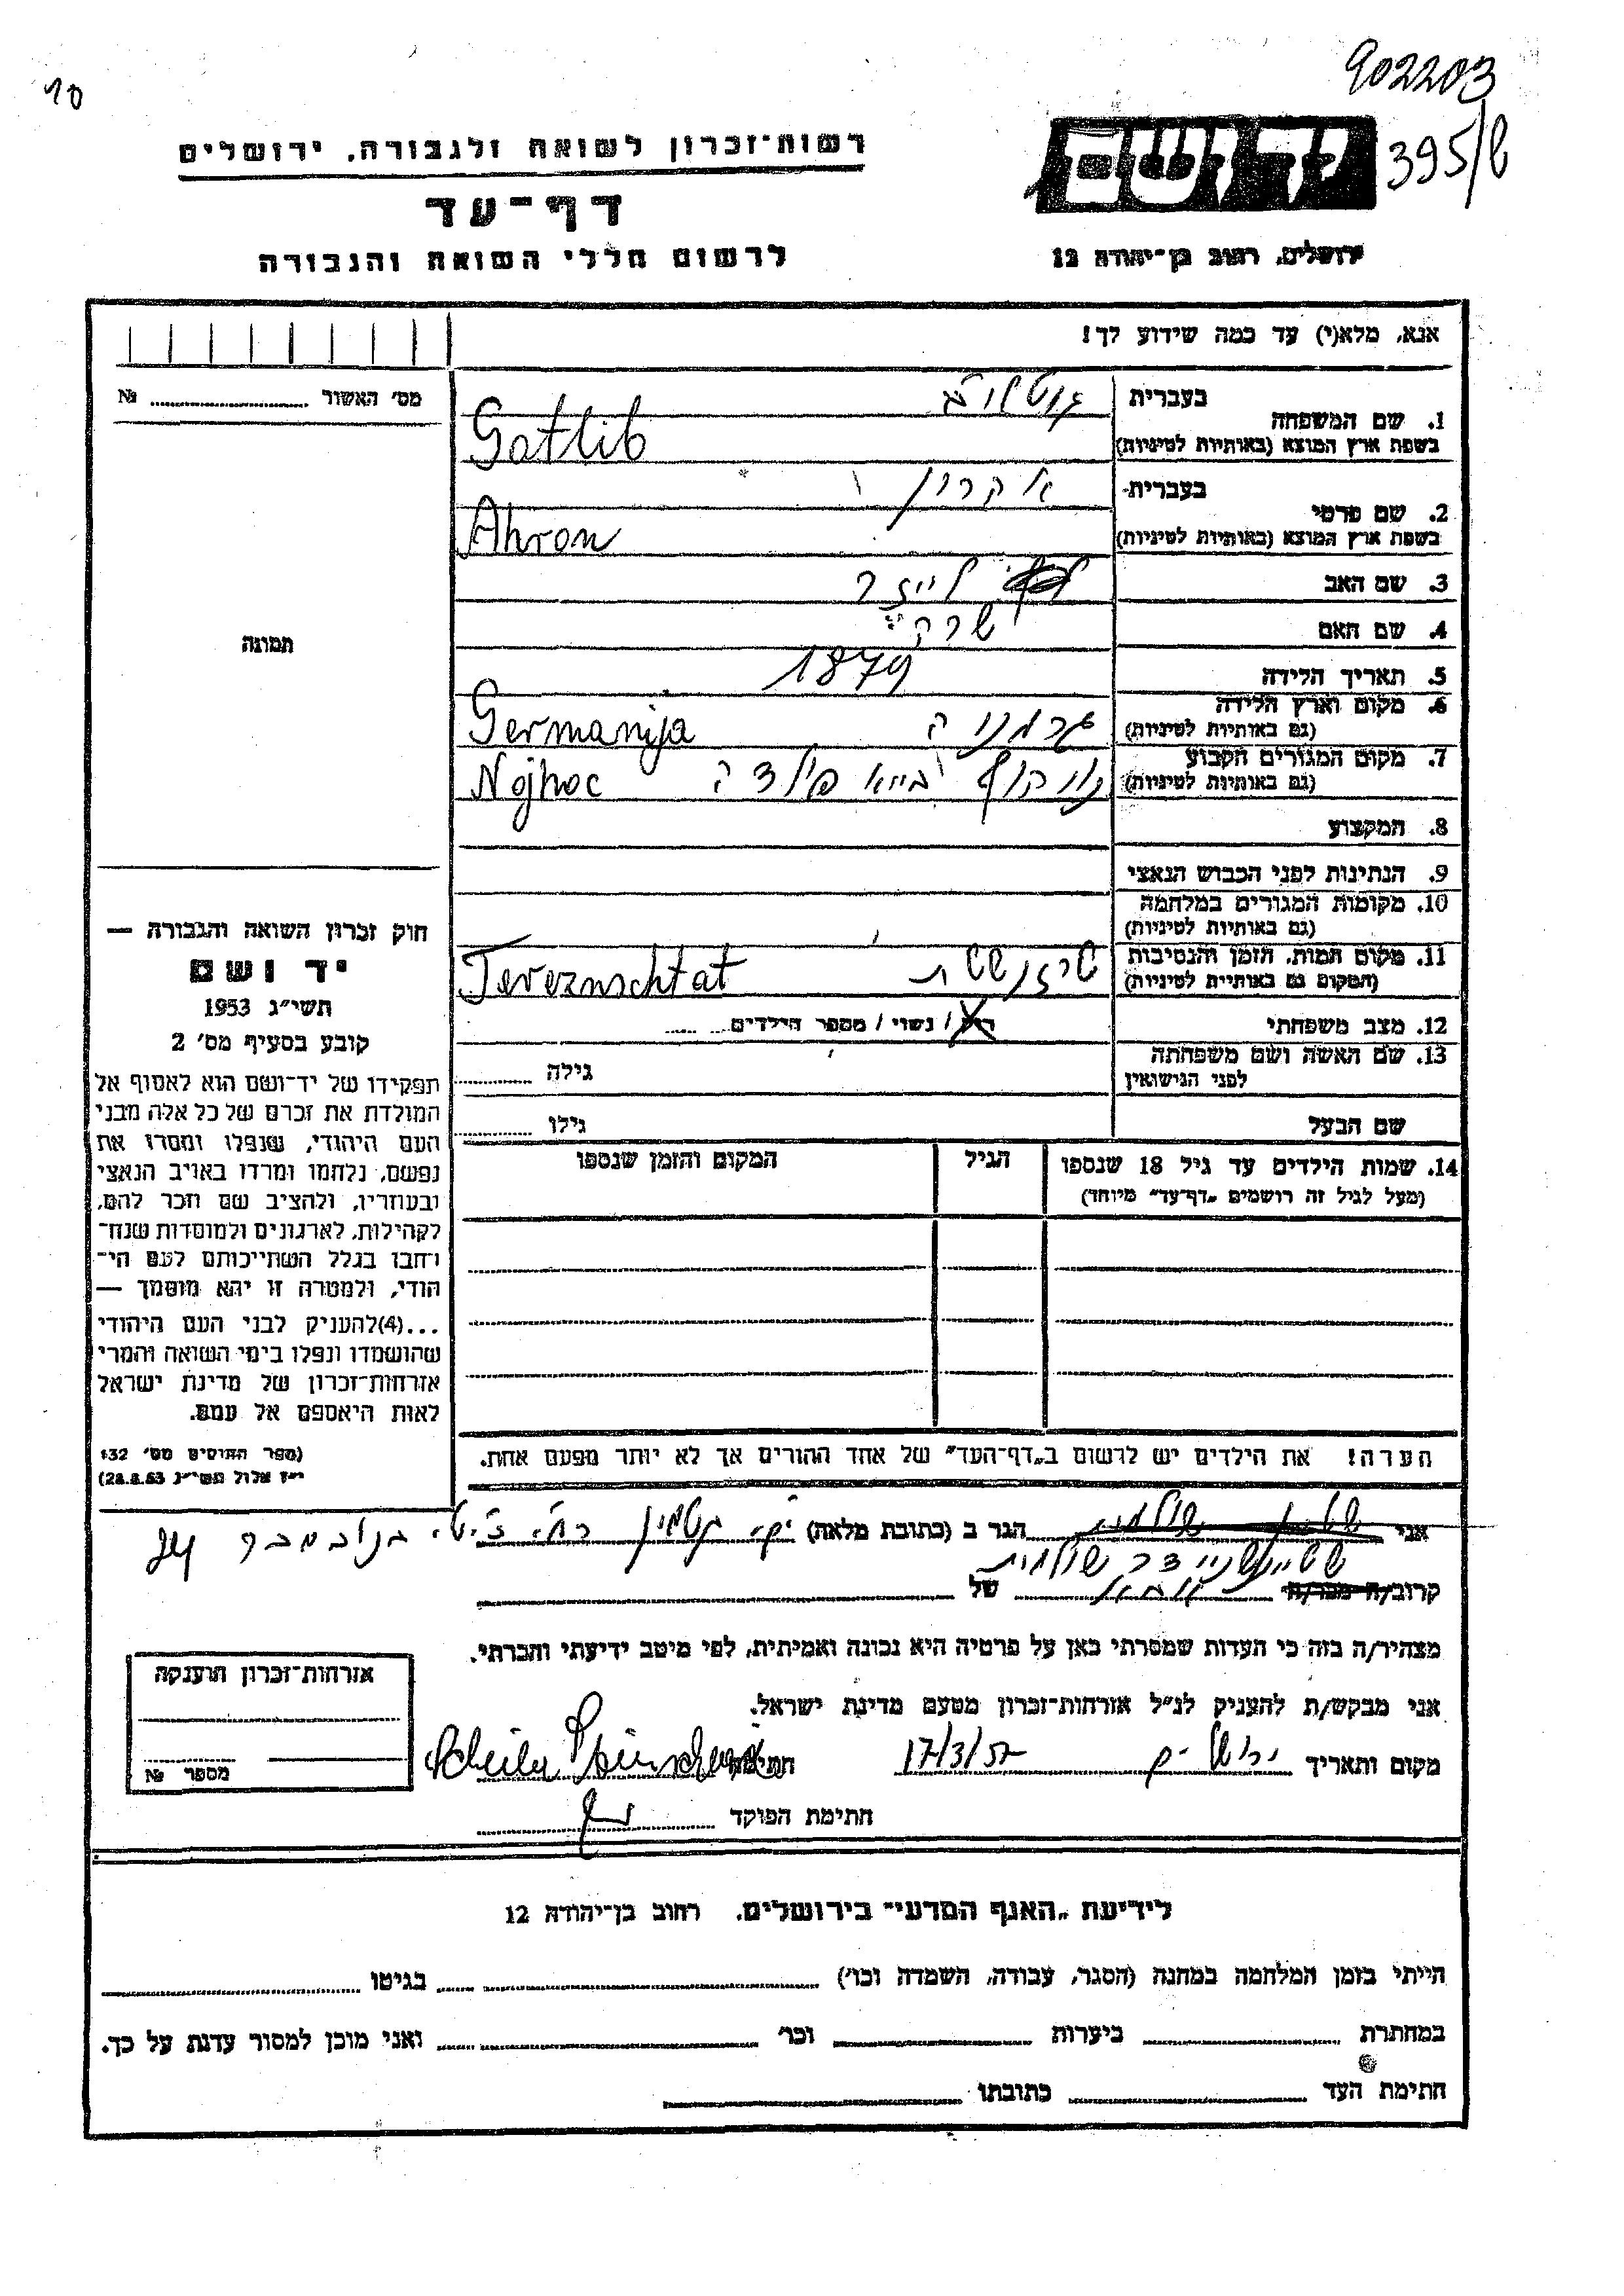 902203
395/8
10
יד ושם
ירושלים, רחוב בן־יהודה 12
רשות־זכרון לשואה ולגבורה, ירושלים
דף־עד
לרשום חללי השואה והגבורה
אנא, מלא(י) עד כמה שידוע לך!
מס׳ האשור № 
תמונה
בעברית גוטליב
1. שם המשפחה
בשפת ארץ המוצא (באותיות לטיניות) Gotlib
בעברית אהרון
2. שם פרטי
בשפת ארץ המוצא (באותיות לטיניות) Ahron
3. שם האב לייזר
4. שם האם שרה
5. תאריך הלידה 1879
6. מקום וארץ הלידה גרמניה Germanija
(גם באותיות לטיניות)
7. מקום המגורים הקבוע נויהוף בייא פולדה Nojhoc
(גם באותיות לטיניות)
8. המקצוע
9. הנתינות לפני הכבוש הנאצי
10. מקומות המגורים במלחמה
(גם באותיות לטיניות)
11. מקום המות, הזמן והנסיבות טרזנשטט Tereznschtat
(המקום גם באותיות לטיניות)
12. מצב משפחתי רווק / נשוי / מספר הילדים
13. שם האשה ושם משפחתה גילה
לפני הנישואין
שם הבעל גילו
14. שמות הילדים עד גיל 18 שנספו הגיל המקום והזמן שנספו
(מעל לגיל זה רושמים „דף־עד״ מיוחד)
הערה! את הילדים יש לרשום ב„דף־העד״ של אחד ההורים אך לא יותר מפעם אחת.
חוק זכרון השואה והגבורה —
יד ושם
תשי״ג 1953
קובע בסעיף מס׳ 2
תפקידו של יד־ושם הוא לאסוף אל
המולדת את זכרם של כל אלה מבני
העם היהודי, שנפלו ומסרו את
נפשם, נלחמו ומרדו באויב הנאצי
ובעוזריו, ולהציב שם וזכר להם,
לקהילות, לארגונים ולמוסדות שנח־
רבו בגלל השתייכותם לעם הי־
הודי, ולמטרה זו יהא מוסמך —
...(4)להעניק לבני העם היהודי
שהושמדו ונפלו בימי השואה והמרי
אזרחות־זכרון של מדינת ישראל
לאות היאספם אל עמם.
(ספר החוקים מס׳ 132
י״ז אלול תשי״ג 28.8.53)
אני הגר ב (כתובת מלאה)
שטיינשניידר שולמית
קרוב/ה מכר/ה של
מצהיר/ה בזה כי העדות שמסרתי כאן על פרטיה היא נכונה ואמיתית, לפי מיטב ידיעתי והכרתי.
אני מבקש/ת להעניק לנ״ל אזרחות־זכרון מטעם מדינת ישראל.
מקום ותאריך 17/3/57 חתימה
חתימת הפוקד
אזרחות־זכרון הוענקה
מספר №
לידיעת „האגף המדעי״ בירושלים, רחוב בן־יהודה 12
הייתי בזמן המלחמה במחנה (הסגר, עבודה, השמדה וכו׳) בגיטו
במחתרת ביערות וכו׳ ואני מוכן למסור עדות על כך.
חתימת העד כתובתו